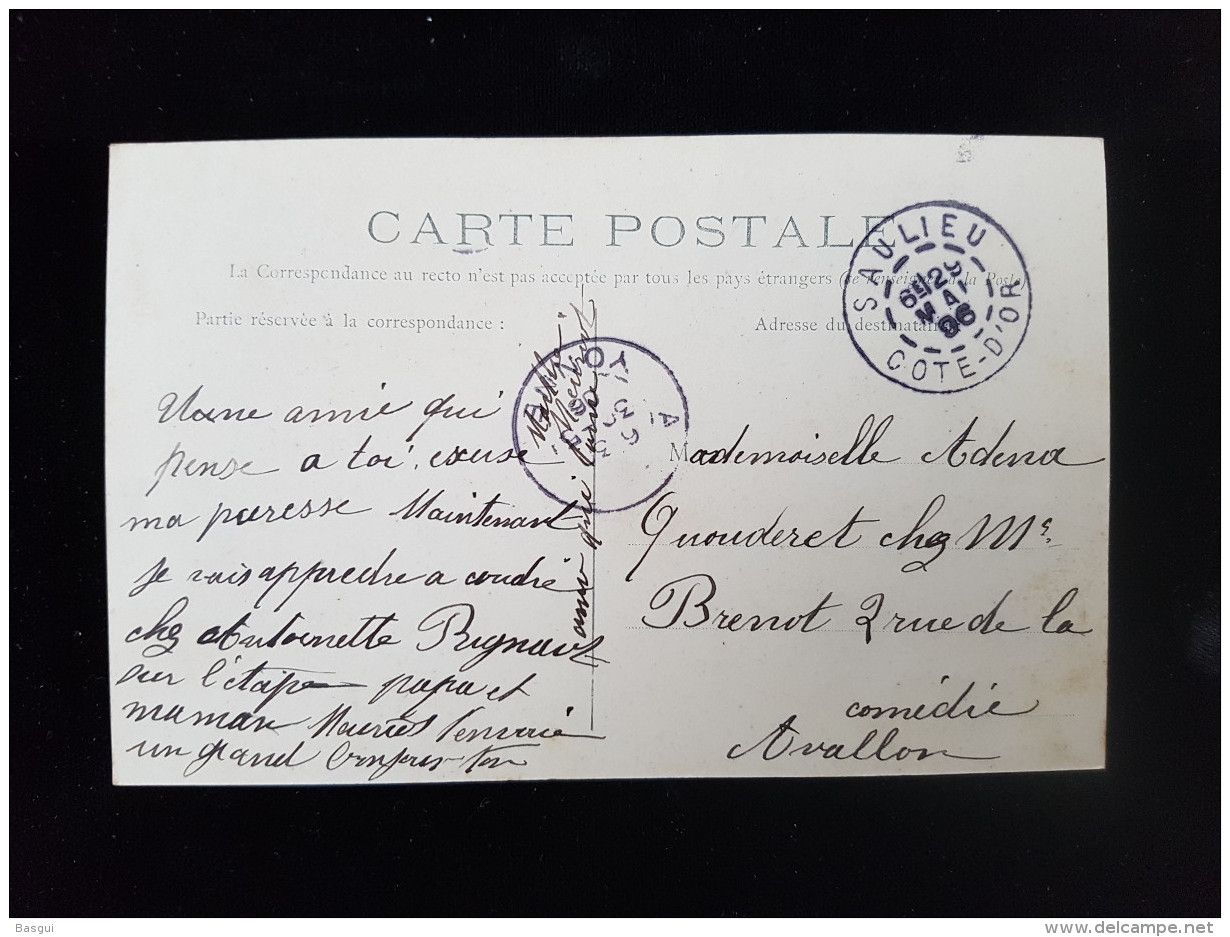 CARTE POSTALE
La Correspondance au recto n'est pas acceptée par tous les pays étrangers (Se renseigner à la Poste)
Partie réservée à la correspondance :
Adresse du destinataire
SAULIEU
MAI
06
COTE-D'OR
une amie qui
pense a toi. excuse
ma paresse Maintenant
Je vais apprendre a coudre
chez Antoinette
sur l'étape papa et
maman t'envoie
un grand
amie qui
Mademoiselle Adena
Quouderet chez Mr.
Brenot 2 rue de la
comédie
Avallon
Basgui
delcampe.net